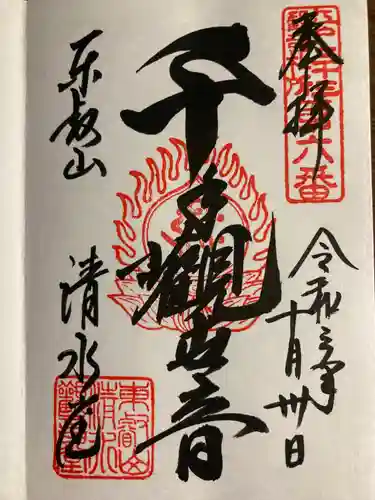 奉拝
六番
令和三年
十月卅日
千手觀世音
東叡山
清水堂
東叡山
清水
觀音堂